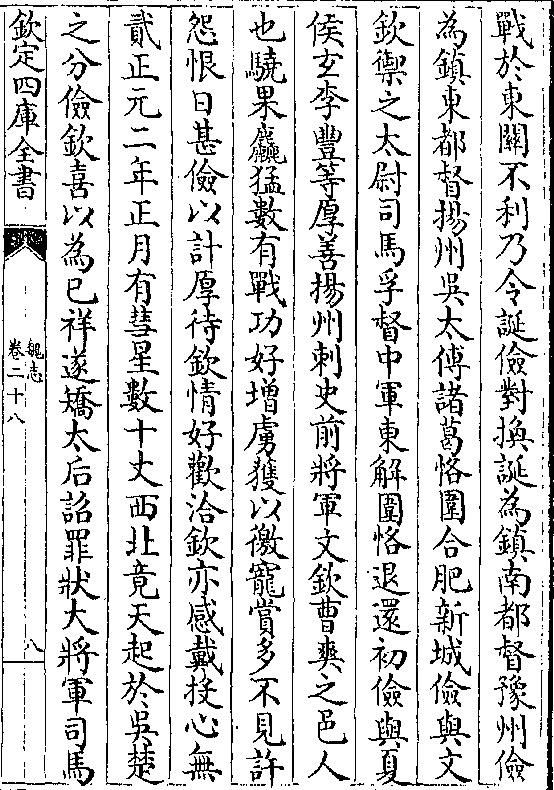 戰於東關不利乃令誕儉對換誕為鎮南都督豫州儉
為鎮東都督揚州吳太傅諸葛恪圍合肥新城儉與文
欽禦之太尉司馬孚督中軍東解圍恪退還初儉與夏
侯玄李豐等厚善揚州刺史前將軍文欽曹爽之邑人
也驍果麤猛數有戰功好增虜獲以徼寵賞多不見許
怨恨日甚儉以計厚待欽情好歡洽欽亦感戴投心無
貳正元二年正月有彗星數十丈西北竟天起於吳楚
之分儉欽喜以為已祥遂矯太后詔罪狀大將軍司馬
欽定四庫全書
魏志
卷二十八
八